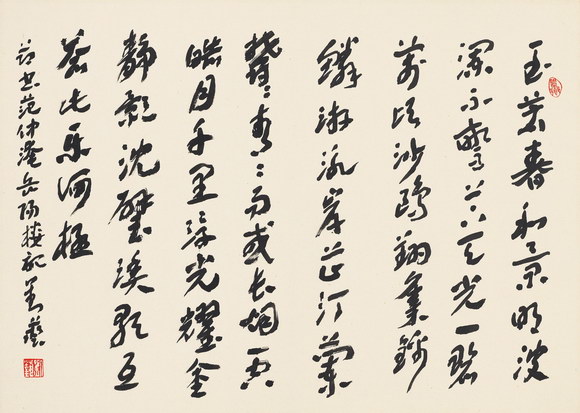 至若春和景明波
瀾不驚上下天光一碧
萬頃沙鷗翔集錦
鱗游泳岸芷汀蘭
鬱〻青〻而或長烟一空
皓月千里浮光耀金
靜影沈璧漁歌互
荅此樂何極
節書范仲淹岳陽樓記 劉藝